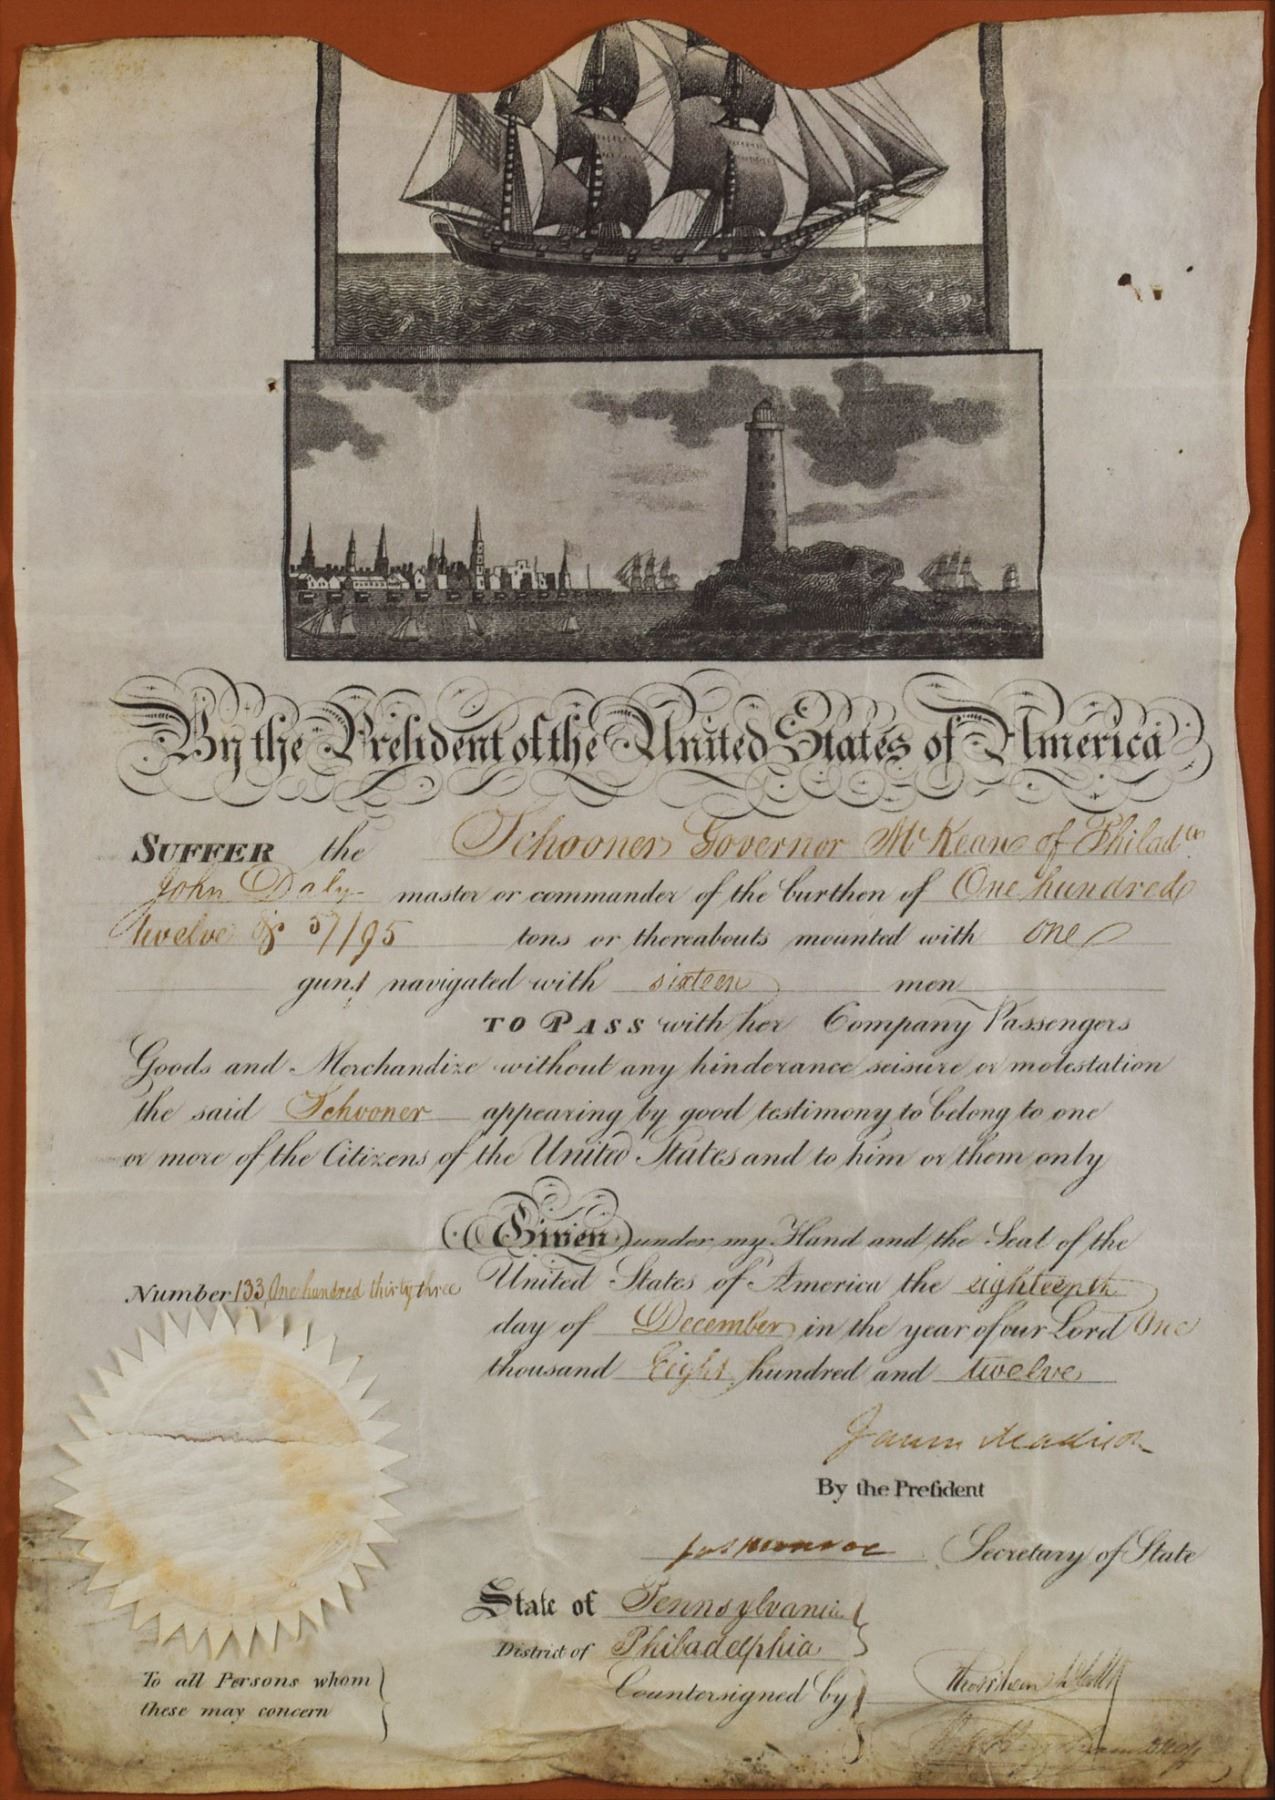 By the President of the United States of America
SUFFER the Schooner Governor McKean of Philada
John Daly master or commander of the burthen of One hundred
twelve & 57/95 tons or thereabouts mounted with one
guns navigated with sixteen men
TO PASS with her Company Passengers
Goods and Merchandize without any hinderance seisure or molestation
the said Schooner appearing by good testimony to belong to one
or more of the Citizens of the United States and to him or them only
Given under my Hand and the Seal of the
Number 133 One hundred thirty three
United States of America the eighteenth
day of December in the year of our Lord One
thousand Eight hundred and twelve
James Madison
By the Preſident
Jas Monroe Secretary of State
State of Pennsylvania
District of Philadelphia
Countersigned by
To all Persons whom
these may concern